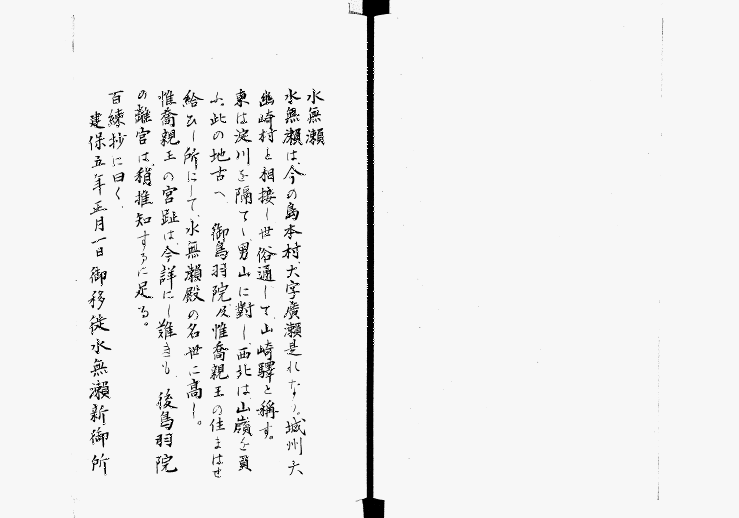 水無瀬
水無瀬は、今の島本村、大字廣瀬是れなり。城州大
山崎村と相接し世俗通して山崎驛と稱す。
東は淀川を隔てゝ男山に對し、西北は山嶺を負
ふ、此の地古へ 御鳥羽院及惟喬親王の住まはせ
給ひし所にして、水無瀬殿の名世に高し。
惟喬親王の宮趾は、今詳にし難きも、後鳥羽院
の離宮は、稍推知するに足る。
百練抄に曰く、
建保五年正月一日御移徙水無瀬新御所